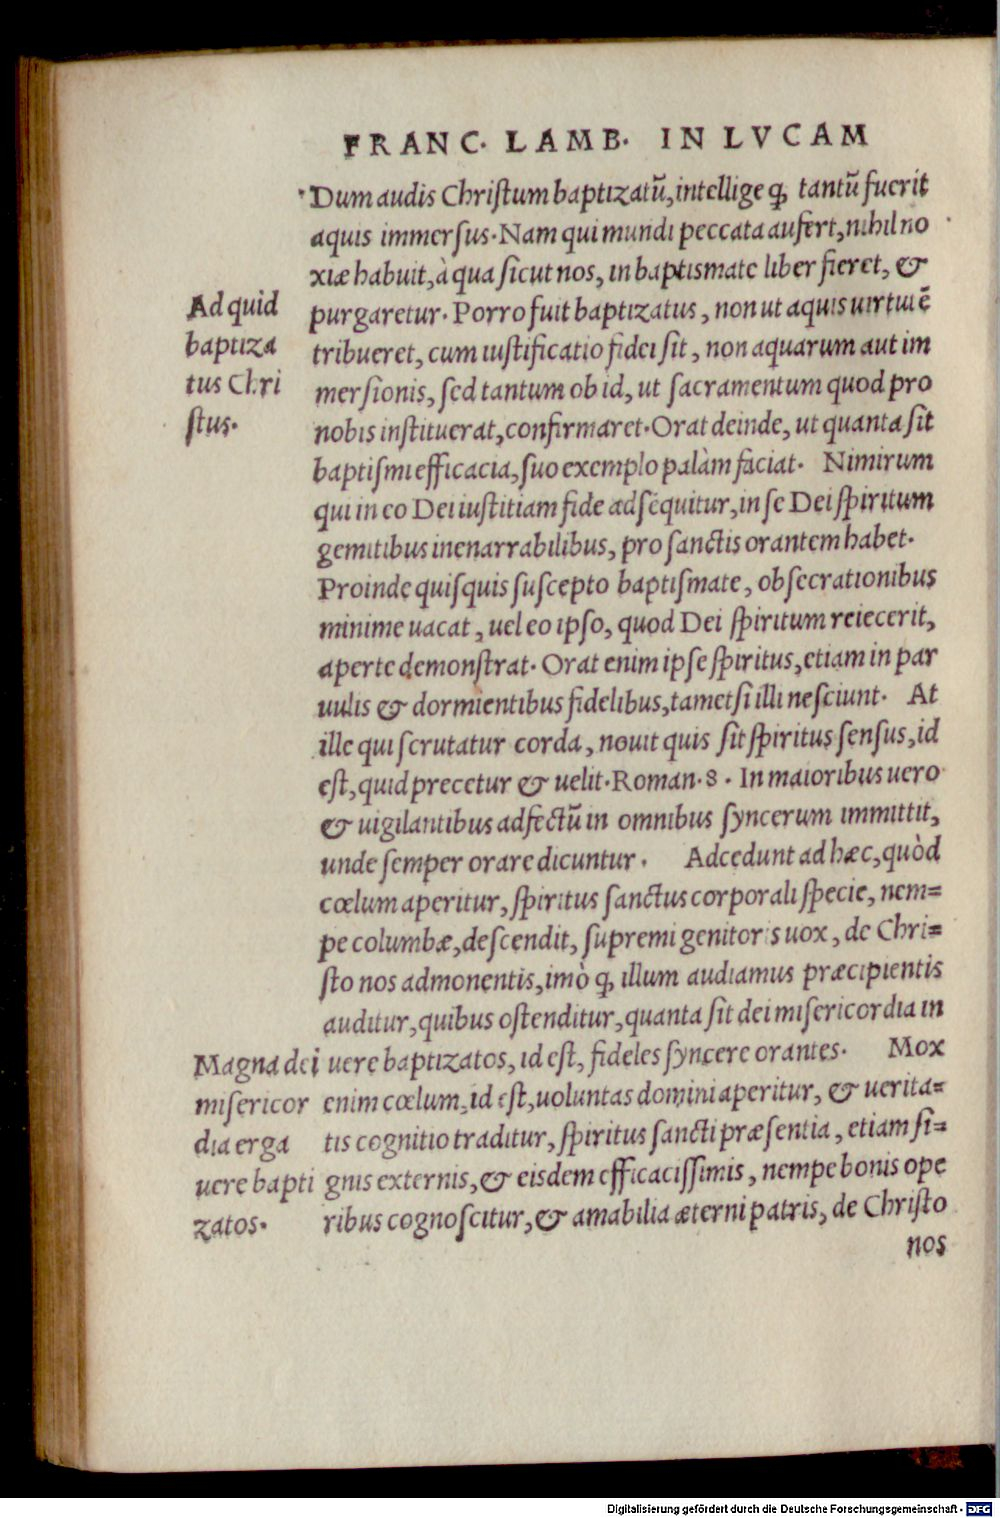 FRANC. LAMB. IN LVCAM
Dum audis Chriſtum baptizatũ, intellige ꝙ tantũ fuerit
aquis immerſus. Nam qui mundi peccata aufert, nihil no
xiæ habuit, à qua ſicut nos, in baptismate liber fieret, &
purgaretur. Porro fuit baptizatus, non ut aquis uirtutẽ
tribueret, cum iuſtificatio fidei ſit, non aquarum aut im
merſionis, ſed tantum ob id, ut ſacramentum quod pro
nobis inſtituerat, confirmaret. Orat deinde, ut quanta ſit
baptiſmi efficacia, ſuo exemplo palàm faciat. Nimirum
qui in eo Dei iuſtitiam fide adſequitur, in ſe Dei ſpiritum
gemitibus inenarrabilibus, pro ſanctis orantem habet.
Proinde quiſquis ſuſcepto baptiſmate, obſecrationibus
minime uacat, uel eo ipſo, quod Dei ſpiritum reiecerit,
aperte demonſtrat. Orat enim ipſe ſpiritus, etiam in par
uulis & dormientibus fidelibus, tametſi illi neſciunt. At
ille qui ſcrutatur corda, nouit quis ſit ſpiritus ſenſus, id
eſt, quid precetur & uelit. Roman. 8. In maioribus uero
& uigilantibus adfectũ in omnibus ſyncerum immittit,
unde ſemper orare dicuntur. Adcedunt ad hæc, quòd
cœlum aperitur, ſpiritus ſanctus corporali ſpecie, nem=
pe columbæ, deſcendit, ſupremi genitoris uox, de Chri=
ſto nos admonentis, imò ꝙ illum audiamus præcipientis
auditur, quibus oſtenditur, quanta ſit dei miſericordia in
uere baptizatos, id eſt, fideles ſyncere orantes. Mox
enim cœlum, id eſt, uoluntas domini aperitur, & uerita=
tis cognitio traditur, ſpiritus ſancti præſentia, etiam ſi=
gnis externis, & eisdem efficaciſſimis, nempe bonis ope
ribus cognoſcitur, & amabilia æterni patris, de Chriſto
nos
Ad quid
baptiza
tus Chri
ſtus.
Magna dei
miſericor
dia erga
uere bapti
zatos.
Digitalisierung gefördert durch die Deutsche Forschungsgemeinschaft - DFG